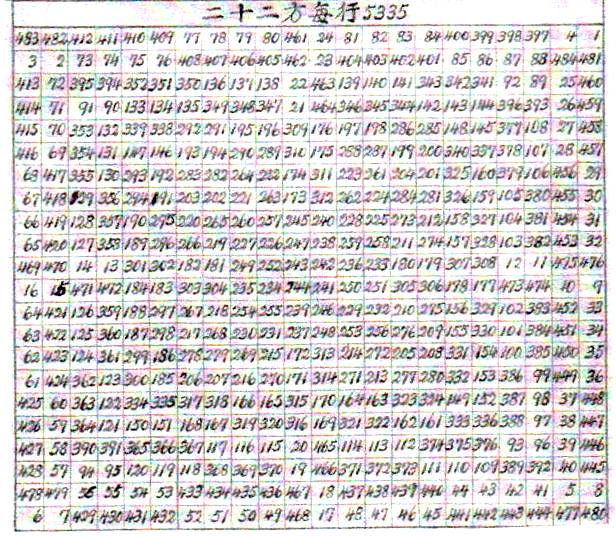 二十二方每行5335
483 482 412 411 410 409 77 78 79 80 461 24 81 82 83 84 400 399 398 397 4 1
3 2 73 74 75 76 408 407 406 405 462 23 404 403 402 401 85 86 87 88 484 481
413 72 395 394 352 351 350 136 137 138 22 463 139 140 141 343 342 341 92 89 25 460
414 71 91 90 133 134 135 349 348 347 21 464 346 345 344 142 143 144 396 393 26 459
415 70 353 132 339 338 292 291 195 196 309 176 197 198 286 285 148 145 377 108 27 458
416 69 354 131 147 146 193 194 290 289 310 175 288 287 199 200 340 337 378 107 28 457
68 417 355 130 293 192 283 282 264 222 174 311 223 261 204 201 325 160 379 106 456 29
67 418 129 356 294 191 203 202 221 263 173 312 262 224 284 281 326 159 105 380 455 30
66 419 128 357 190 295 220 265 260 257 245 240 228 225 273 212 158 327 104 381 454 31
65 420 127 358 189 296 266 219 227 226 247 238 259 258 211 274 157 328 103 382 453 32
469 470 14 13 301 302 182 181 249 252 243 242 236 233 180 179 307 308 12 11 475 476
16 15 471 472 184 183 303 304 235 234 244 241 250 251 305 306 178 177 473 474 10 9
64 421 126 359 188 297 267 218 254 255 239 246 229 232 210 275 156 329 102 383 452 33
63 422 125 360 187 298 217 268 230 231 237 248 253 256 276 209 155 330 101 384 451 34
62 423 124 361 299 186 278 279 269 215 172 313 214 272 205 208 331 154 100 385 450 35
61 424 362 123 300 185 206 207 216 270 171 314 271 213 277 280 332 153 386 99 449 36
425 60 363 122 334 335 317 318 166 165 315 170 164 163 323 324 149 152 387 98 37 448
426 59 364 121 150 151 168 167 319 320 316 169 321 322 162 161 333 336 388 97 38 447
427 58 390 391 365 366 367 117 116 115 20 465 114 113 112 374 375 376 93 96 39 446
428 57 94 95 120 119 118 368 369 370 19 466 371 372 373 111 110 109 389 392 40 445
478 479 56 55 54 53 433 434 435 436 467 18 437 438 439 440 44 43 42 41 5 8
6 7 429 430 431 432 52 51 50 49 468 17 48 47 46 45 441 442 443 444 477 480